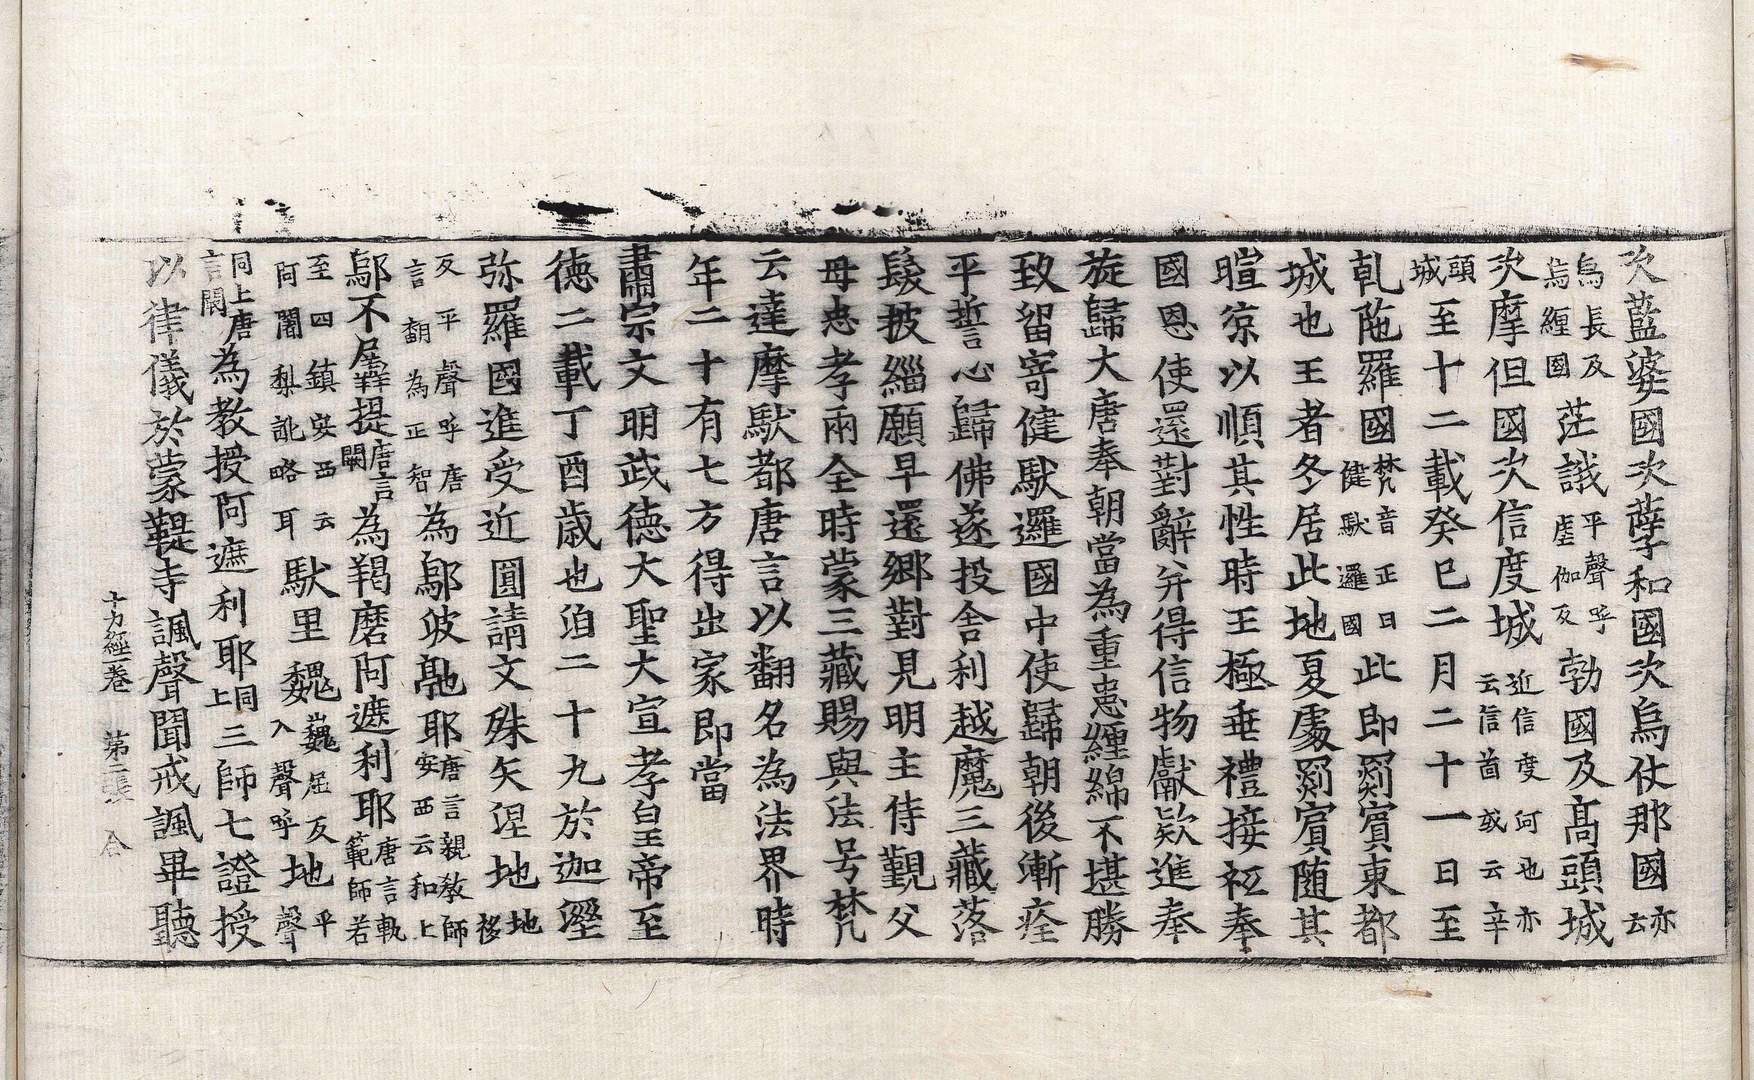 次藍婆國次孽和國次烏仗那國亦云
烏長及烏纏國茫誐平聲呼虐伽反勃國及髙頭城
次摩但國次信度城近信度河也亦云信啚或云辛
頭城至十二載癸巳二月二十一日至
乹陁羅國梵音正曰健馱邏國此即罽賓東都
城也王者冬居此地夏處罽賓随其
暄凉以順其性時王極垂禮接祗奉
國恩使還對辭并得信物獻欵進奉
旋歸大唐奉朝當為重患纏綿不堪勝
致留寄健馱邏國中使歸朝後漸痊
平誓心歸佛遂投舍利越魔三藏落
髮披緇願早還鄉對見明主侍覲父
母忠孝兩全時蒙三藏賜與法号梵
云達摩馱都唐言以翻名為法界時
年二十有七方得出家即當
肅宗文明武德大聖大宣孝皇帝至
德二載丁酉歲也洎二十九於迦濕
弥羅國進受近圓請文殊矢涅地地移
反平聲呼唐言翻為正智為鄔波䭾耶唐言親教師安西云和上
鄔不羼提唐言闕為羯磨阿遮利耶唐言軌範師若
至四鎮安西云阿闍梨訛略耳馱里魏巍屈反入聲呼地平聲
同上唐言闕為教授阿遮利耶同上三師七證授
以律儀於蒙鞮寺諷聲聞戒諷畢聽
十力經一卷 第二張 合